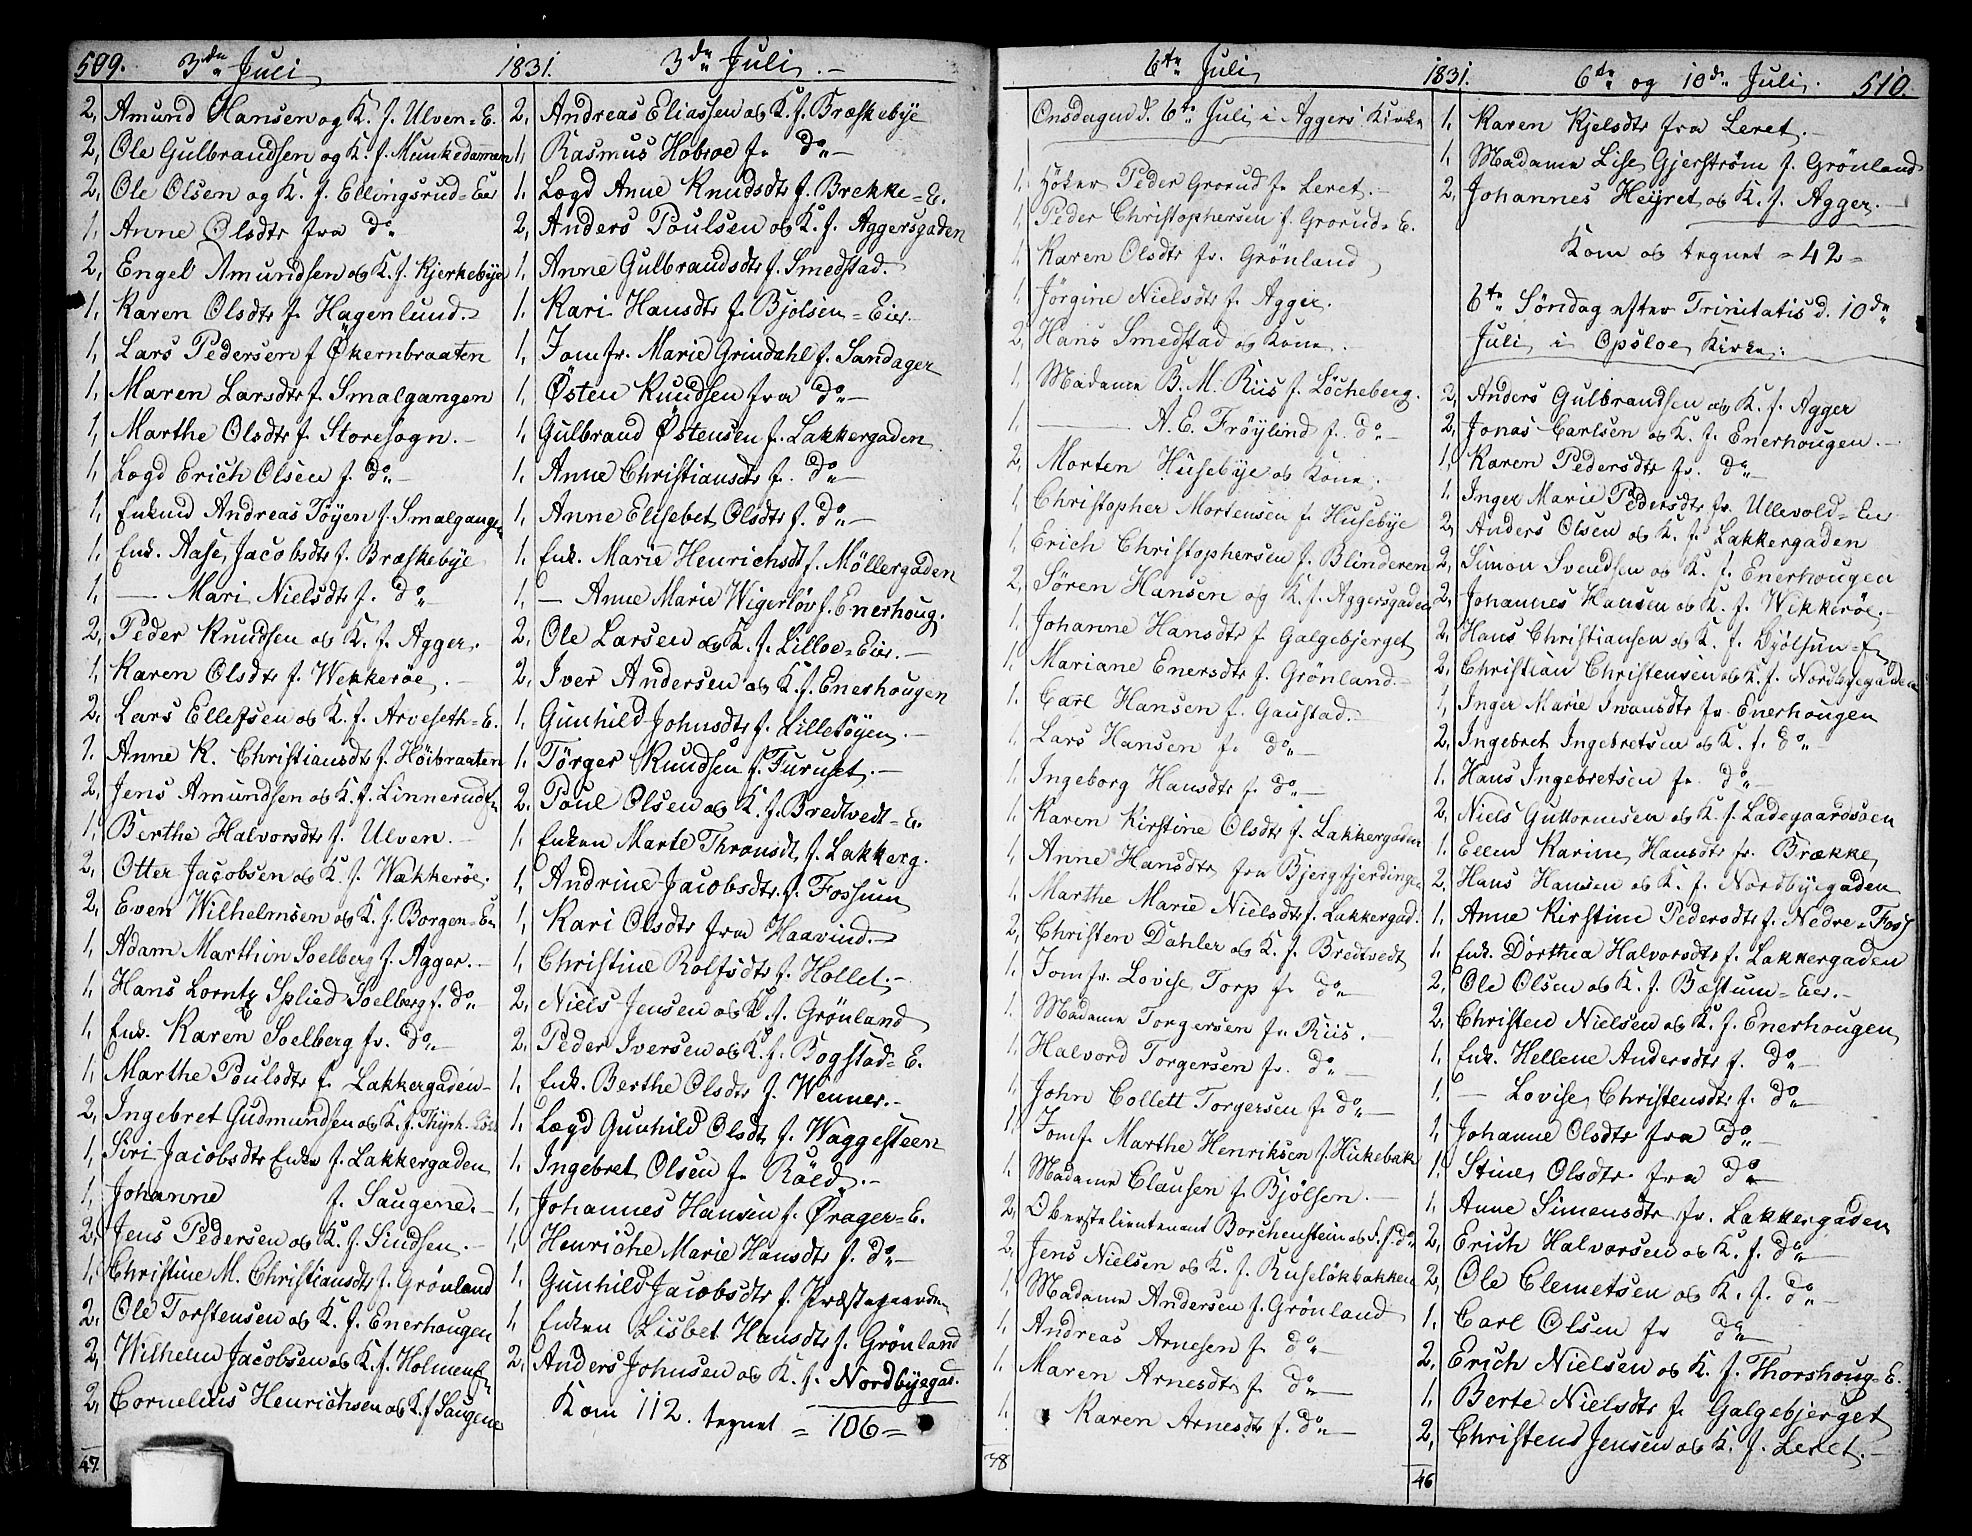 509. 3de Juli 1831. 3de Juli.
2, Amund Hansen og K. f. Ulven=E.
2, Ole Gulbrandsen og K. f. Munkedammen
2, Ole Olsen og K. f. Ellingsrud=Eier
1, Anne Olsdtr fra do
2, Engel Amundsen og K. f. Kjerkebye
1, Karen Olsdtr f. Hagenlund.
1, Lars Pedersen f Økernbraaten
1, Maren Larsdtr f. Smalgangen
1, Marthe Olsdtr f. Storesogn.
1, Lægd Erich Olsen f. do
1, Enkemd Andreas Töyen f. Smalgangen
1, Enk. Aase Jacobsdtr f. Bræskebye
1, — Mari Nielsdtr f. do
2, Peder Knudsen og K. f. Agger.
1, Karen Olsdtr f. Wekkeröe.
2, Lars Ellefsen og K. f. Arveseth=E.
1. Anne K. Christiansdtr f. Höibraaten
2, Jens Amundsen og K. f. Linnerud
1, Berthe Halvorsdtr f. Ulven.
2, Otter Jacobsen og K. f. Wækkeröe.
2, Even Wilhelmsen og K. f. Borgen=Eie
1, Adam Marthin Soelberg f. Agger.
1, Hans Lorntz Splied Soelberg f. do
1, Enk. Karen Soelberg fr. do
1, Marthe Poulsdtr f. Lakkergaden
2, Ingebret Gudmundsen og K. f. Thyrh.
1, Siri Jacobsdtr Enke f. Lakkergaden
1, Johanne f. Saugene.
2, Jens Pedersen og K. f. Sindsen.
1, Christine M. Christiansdtr f. Grönland
2. Ole Torstensen og K. f. Enerhougen
2, Wilhelm Jacobsen og K. f. Holmen
2, Cornelius Henrichsen og K. f Saugene
47.
2, Andreas Eliassen og K. f. Bræskebye
1, Rasmus Hobroe f. do
1. Lægd Anne Knudsdtr f. Brekke=E.
2, Anders Poulsen og K. f. Aggersgaden
1, Anne Gulbrandsdtr f. Smedstad.
1. Kari Hansdtr f. Bjolsen=Eier
1, Jomfr. Marie Grindahl f. Sandager
1, Østen Knudsen fra do
1, Gulbrand Østensen f. Lakkergaden
1, Anne Christiansdtr f. do
1, Anne Elisebet Olsdtr f. do
1. Enk. Marie Henrichsdt f. Möllergaden
1, — Anne Marie Wigerlöv f. Enerhoug.
2. Ole Larsen og K. f. Lilloe=Eier.
2, Iver Andersen og K. f. Enerhougen
1, Gunhild Johnsdtr f. Lilletöyen.
1. Törger Knudsen f. Furuset.
2. Poul Olsen og K. f. Bredtvedt=E.
1. Enken Marte Thronsdt. f. Lakkerg.
1, Andrine Jacobsdtr. f. Fossum
1, Kari Olsdtr fra Haavind.
1, Christine Rolfsdtr f. Hollet.
2, Niels Jensen og K. f. Grönland
2. Peder Iversen og K. f. Bogstad=E.
1, Enk. Berthe Olsdtr f. Wenner.
1. Lægd Gunhild Olsdt. f. Waggesteen
1, Ingebret Olsen f. Röed.
1, Johannes Hansen f. Ørager=E.
1, Henriche Marie Hansdtr f. do
1, Gunhild Jacobsdtr f. Præstegaarden
1, Enken Lisbet Hansdtr f. Grönland
2. Anders Johnsen og K. f. Nordbyegad.
Kom 112. tegnet = 106 =
6te Juli 1831. 6te og 10de Juli. 510.
Onsdagen d. 6te Juli i Aggers Kirke
1. Höker Peder Grorud fr. Leret.
1, Peder Christophersen f. Grorud=E.
1 Karen Olsdtr fr. Grönland
1 Jörgine Nielsdtr f. Agger.
2, Hans Smedstad og Kone.
1 Madame B. M. Riis f. Löcheberg.
1. — A. E. Fröylind f. do
2, Morten Husebye og Kone.
1, Christopher Mortensen fr Husebye
1, Erich Christophersen f. Blinderen
2, Sören Hansen og K. f. Aggersgaden
1, Johanne Hansdtr f Galgebjerget
1, Mariane Enersdtr f. Grönland.
1. Carl Hansen f. Gaustad.
1 Lars Hansen fr. do
1. Ingeborg Hansdtr f. do
1. Karen Kirstine Olsdtr f. Lakkergaden
1, Anne Hansdtr fra Bjergfjerdingen
1, Marthe Marie Nielsdtr f. Lakkergad.
2, Christen Dahler og K. f. Bredtvedt
1. Jomfr. Lovise Torp fr do
1. Madame Torgersen fr Riis.
1. Halvord Torgersen fr. do
1 John Collett Torgersen f. do
1, Jomfr Marthe Henriksen f. Kikebak
1. Madame Clausen f. Bjölsen.
2, Oberstelieutenant Borchenstein og S. f. do
2, Jens Nielsen og K. f. Ruselökbakken
1, Madame Andersen f. Grönland
1. Andreas Arnesen f do
1. Maren Arnesdtr f. do
1. Karen Arnesdtr f. do
38
1, Karen Kjelsdtr fra Leret.
1, Madame Lise Gjerström f. Grönland
2, Johannes Heyret og K. f. Agger.
Kom og tegnet = 42 =
6te Söndag efter Trinitatis d. 10de
Juli i Opsloe Kirke:
2, Anders Gulbrandsen og K. f. Agger
2, Jonas Carlsen og K. f. Enerhougen.
1, Karen Pedersdtr fr. do
1. Inger Marie Pedersdtr fr. Ullevold=Eier
2, Anders Olsen og K. f. Lakkergaden
2, Simon Svendsen og K. f. Enerhougen
2, Johannes Hansen og K. f. Wekkeröe.
2, Hans Christiansen og K. f. Bjölsen=E
2, Christian Christensen og K. f. Nordbyegaden
1, Inger Marie Iwansdtr fr Enerhougen
2, Ingebret Ingebretsen og K. f. do
1. Hans Ingebretsen fr. do
2, Niels Guttormsen og K. f. Ladegaardsöen
1. Ellen Karine Hansdtr fr. Brække
2, Hans Hansen og K. f. Nordbyegaden
1, Anne Kirstine Pedersdtr f. Nedre=Foss
1. Enk. Dorthea Halvorsdtr f. Lakkergaden
2, Ole Olsen og K. f. Bæstum=Eier.
2, Christen Nielsen og K. f. Enerhougen
1. Enk. Hellene Andersdtr f. do
1, — Lovise Christensdtr f. do
1, Johanne Olsdtr fra do
1. Stine Olsdtr fra do
1, Anne Simensdtr fr. Lakkergaden
2, Erich Halvorsen og K. f. do
2, Ole Clemetsen og K. f. do
1. Carl Olsen fr do
2, Erich Nielsen og K. f. Thorshoug=E.
1, Berte Nielsdtr fr Galgebjerget
2, Christen Jensen og K. f. Leret.
46